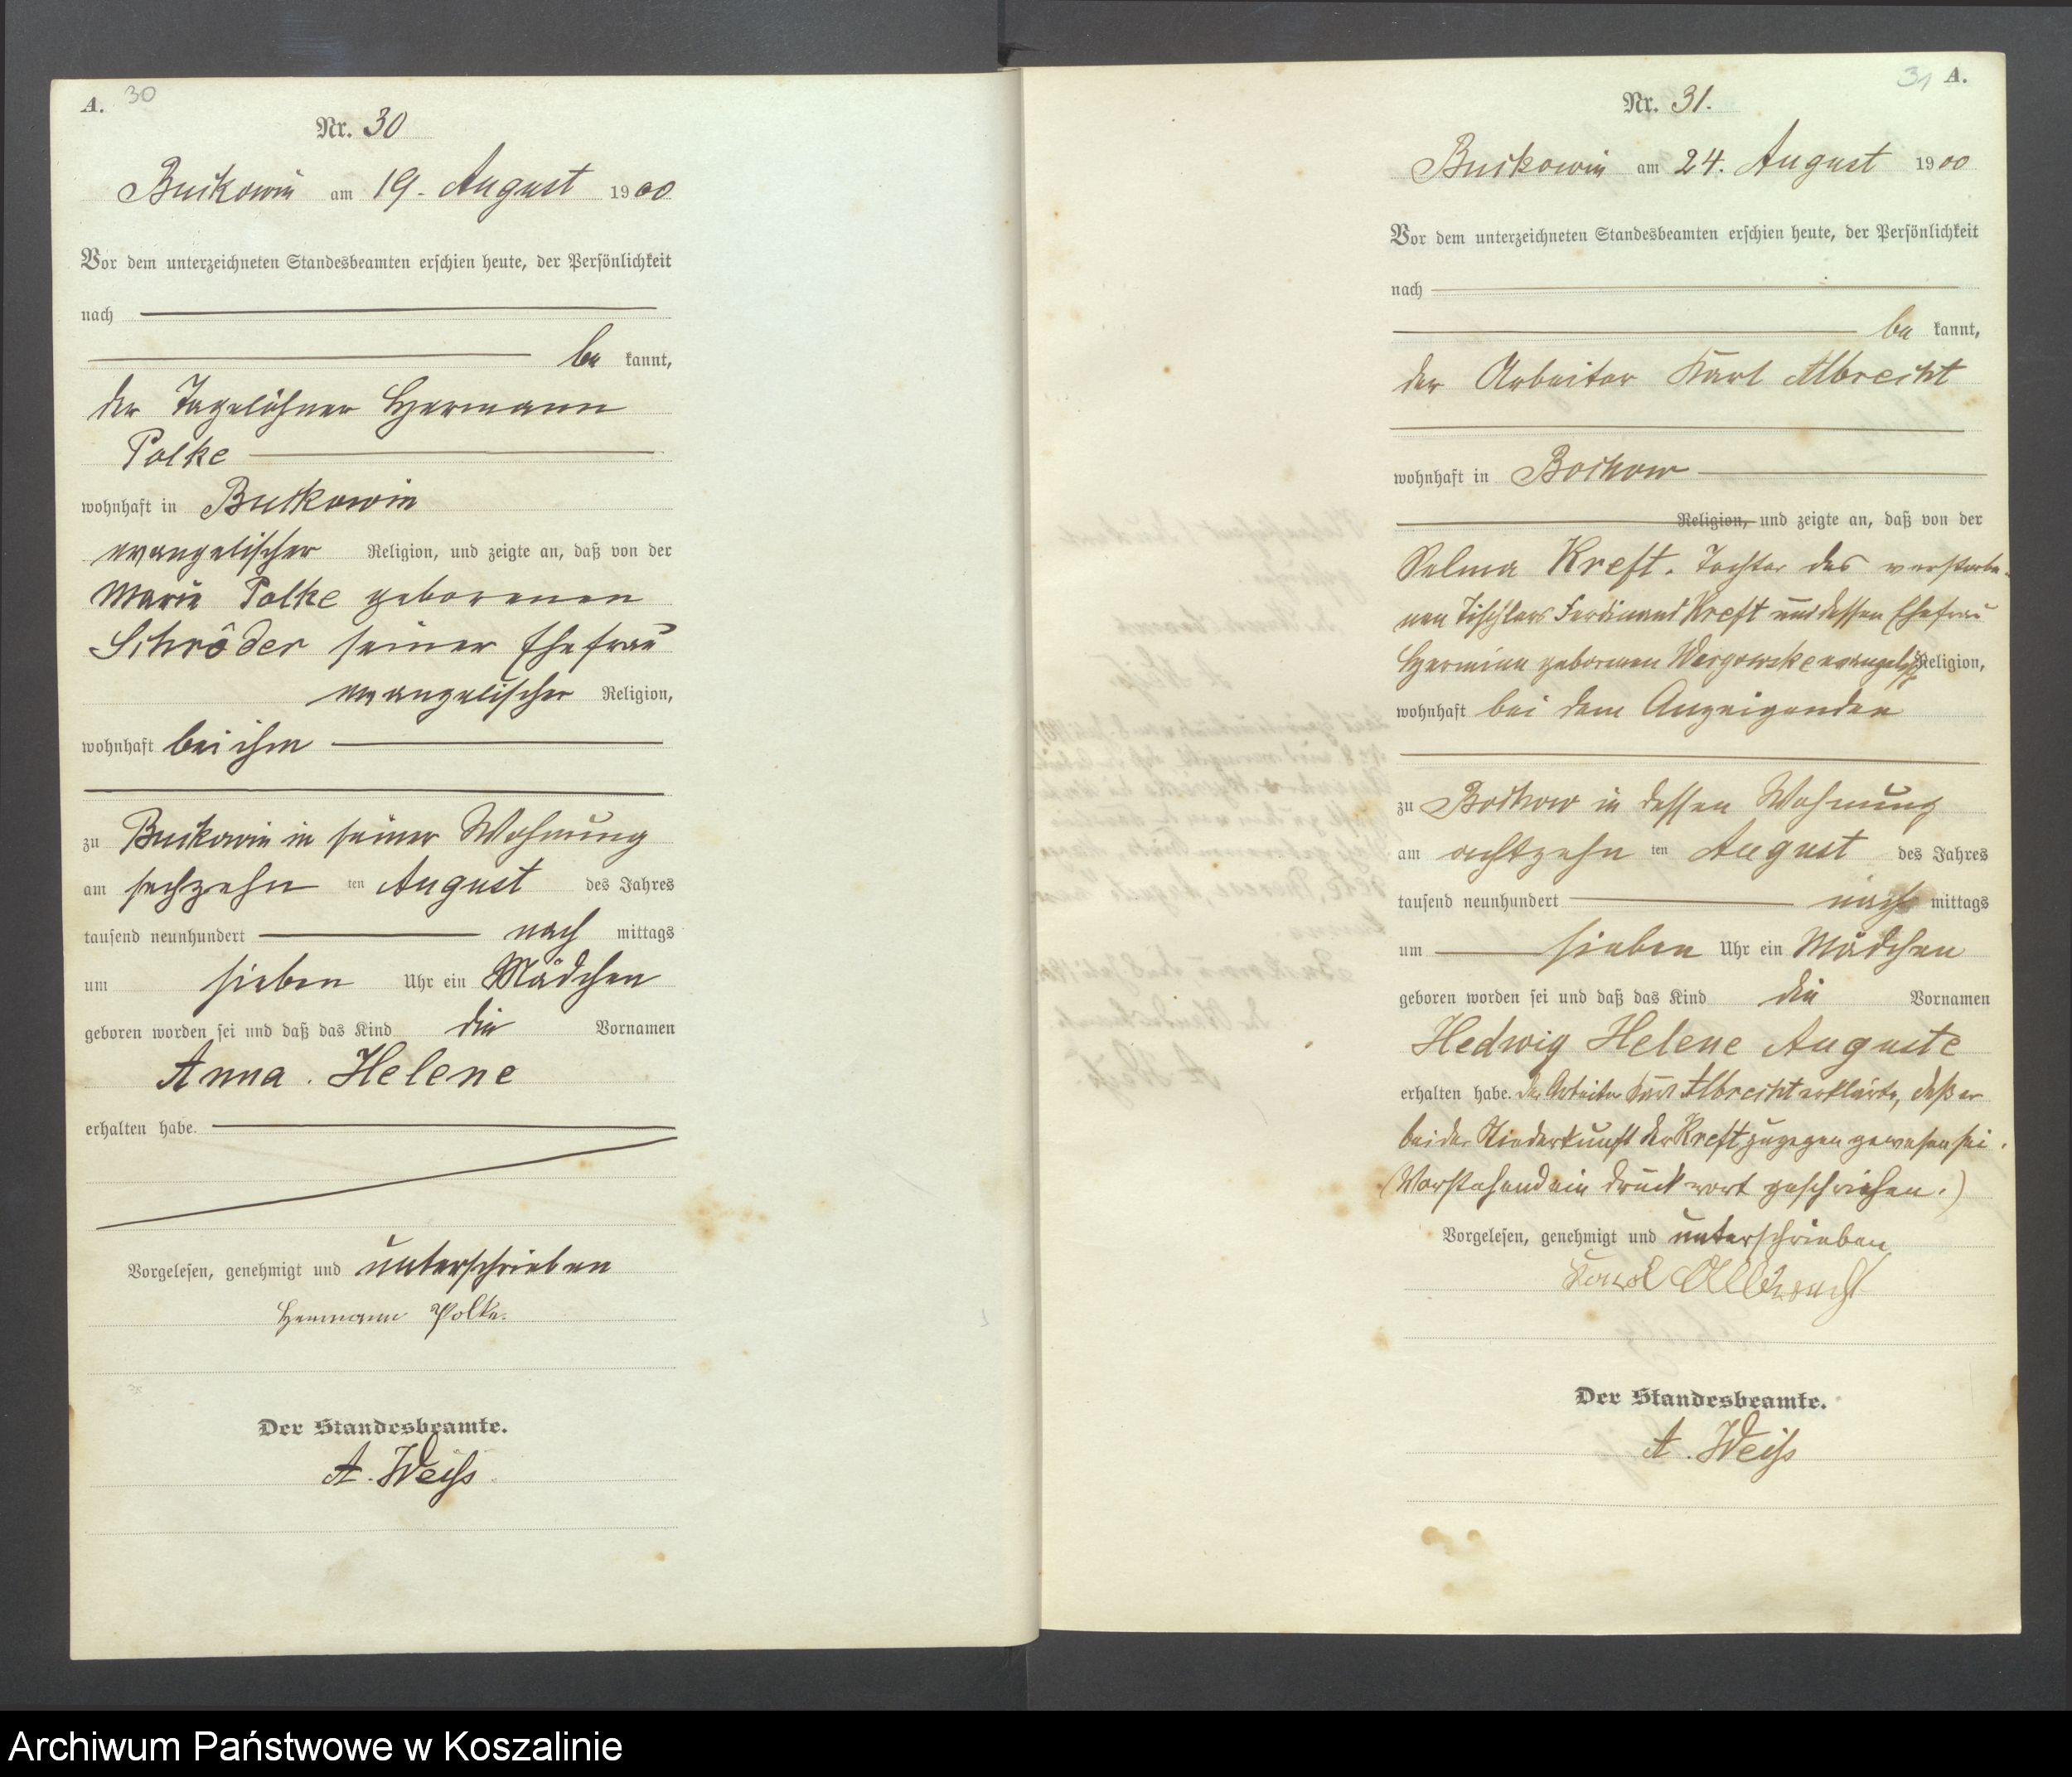 A. 30
Nr. 30
Buckowin am 19. August 1900
Vor dem unterzeichneten Standesbeamten erschien heute, der Persönlichkeit
nach
be kannt,
der Tagelöhner Hermann
Polke
wohnhaft in Buckowin
evangelischer Religion, und zeigte an, daß von der
Marie Polke geborenen
Schröder seiner Ehefrau
evangelischer Religion,
wohnhaft bei ihm
zu Buckowin in seiner Wohnung
am sechzehn ten August des Jahres
tausend neunhundert nach mittags
um sieben Uhr ein Mädchen
geboren worden sei und daß das Kind die Vornamen
Anna Helene
erhalten habe.
Vorgelesen, genehmigt und unterschrieben
Hermann Polke.
Der Standesbeamte.
A. Weiss
31 A.
Nr. 31.
Buckowin am 24. August 1900
Vor dem unterzeichneten Standesbeamten erschien heute, der Persönlichkeit
nach
be kannt,
der Arbeiter Karl Albrecht
wohnhaft in Bochow
Religion, und zeigte an, daß von der
Selma Kreft, Tochter des verstorbe-
nen Tischlers Ferdinand Kreft und dessen Ehefrau
Hermine geborenen evangelischer Religion,
wohnhaft bei dem Anzeigenden
zu Bochow in dessen Wohnung
am achtzehn ten August des Jahres
tausend neunhundert nach mittags
um sieben Uhr ein Mädchen
geboren worden sei und daß das Kind die Vornamen
Hedwig Helene Auguste
erhalten habe. Der Arbeiter Karl Albrecht erklärte, daß er
bei der Niederkunft der Kreft zugegen gewesen sei.
(Vorstehend ein Druckwort geschrieben.)
Vorgelesen, genehmigt und unterschrieben
Karl Albrecht
Der Standesbeamte.
A. Weiss
Archiwum Państwowe w Koszalinie